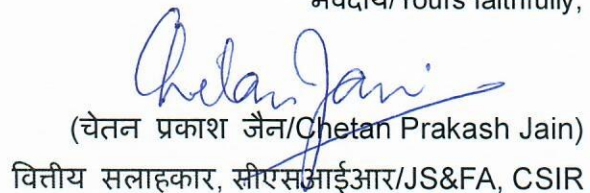 भवदीय/Yours faithfully,
Chetan Jain
(चेतन प्रकाश जैन/Chetan Prakash Jain)
वित्तीय सलाहकार, सीएसआईआर/JS&FA, CSIR